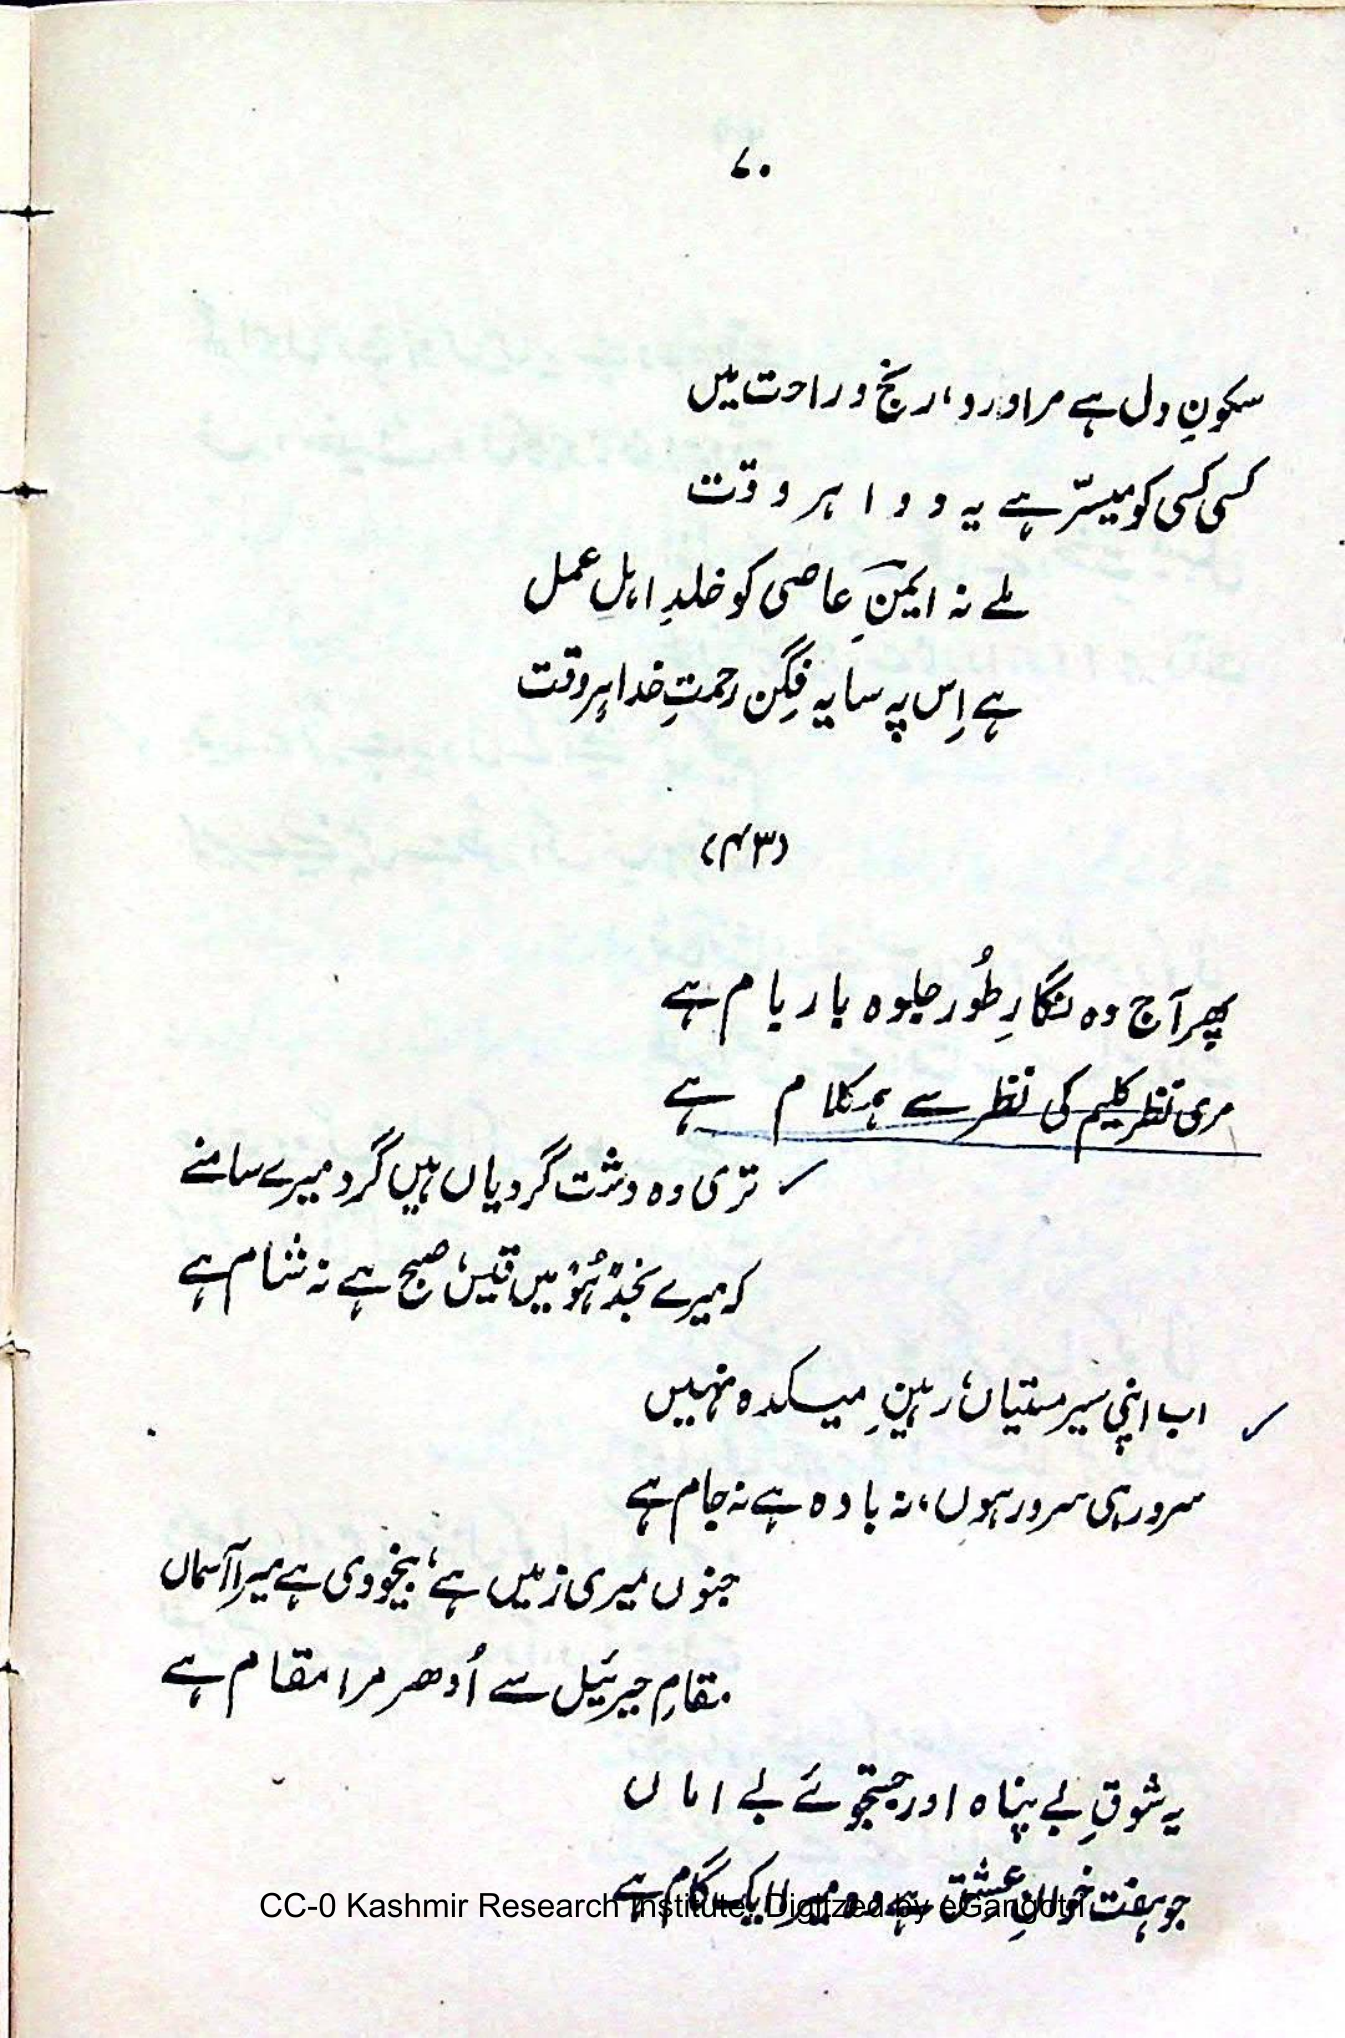 ۷۰
سکونِ دل ہے مرا ورد، رنج و راحت میں
کسی کسی کو میسّر ہے یہ دوا ہر وقت
ملے نہ ایمنِ عاصی کو خلدِ اہلِ عمل
ہے اِس پہ سایہ فِگن رحمتِ خدا ہر وقت
(۴۳)
پھر آج وہ نگارِ طُور جلوہ بار بام ہے
مری نظر کلیم کی نظر سے ہمکلام ہے
تری وہ دشت گردیاں ہیں گرد میرے سامنے
کہ میرے نجدِ ہُو میں قیس، صبح ہے نہ شام ہے
اب اپنی سیر مستیاں، رہینِ میکدہ نہیں
سرور ہی سرور ہوں، نہ بادہ ہے نہ جام ہے
جنوں میری زمیں ہے، بیخودی ہے میرا آسماں
مقامِ جبرئیل سے اُدھر مرا مقام ہے
یہ شوقِ بے پناہ اور جستجوئے بے اماں
جو ہفت خوانِ عشق ہے وہ میرا ایک گام ہے
CC-0 Kashmir Research Institute. Digitzed by eGangotri